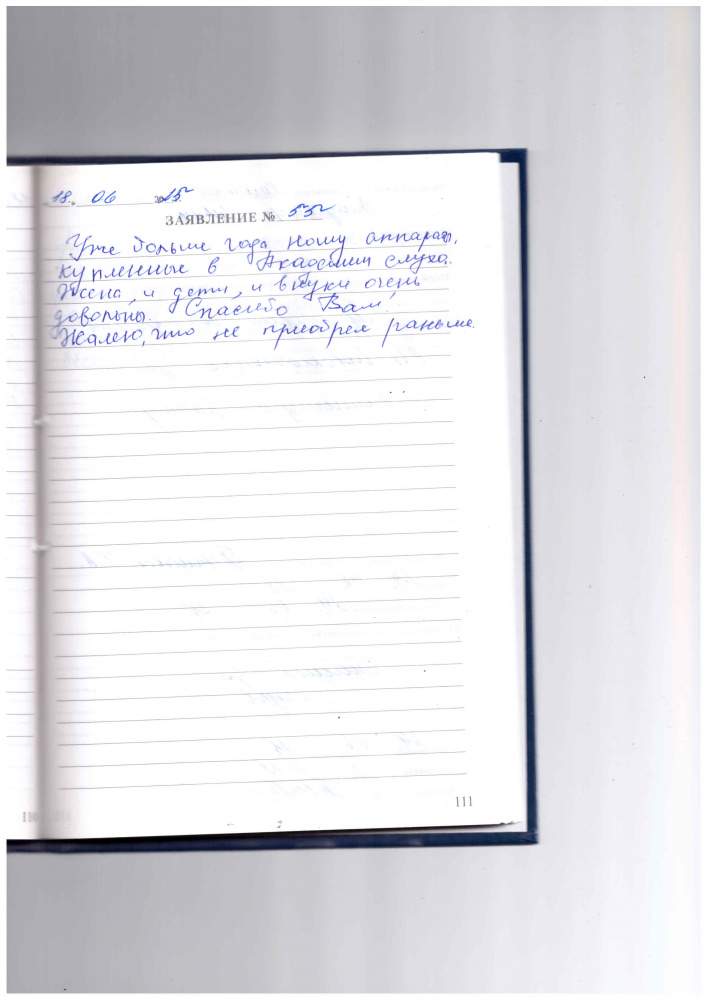 18. 06 2015г
ЗАЯВЛЕНИЕ № 552
Уже больше года ношу аппараты,
купленные в Академии слуха.
Жена, и дети, и внуки очень
довольны. Спасибо Вам!
Жалею, что не приобрел раньше.
111
110